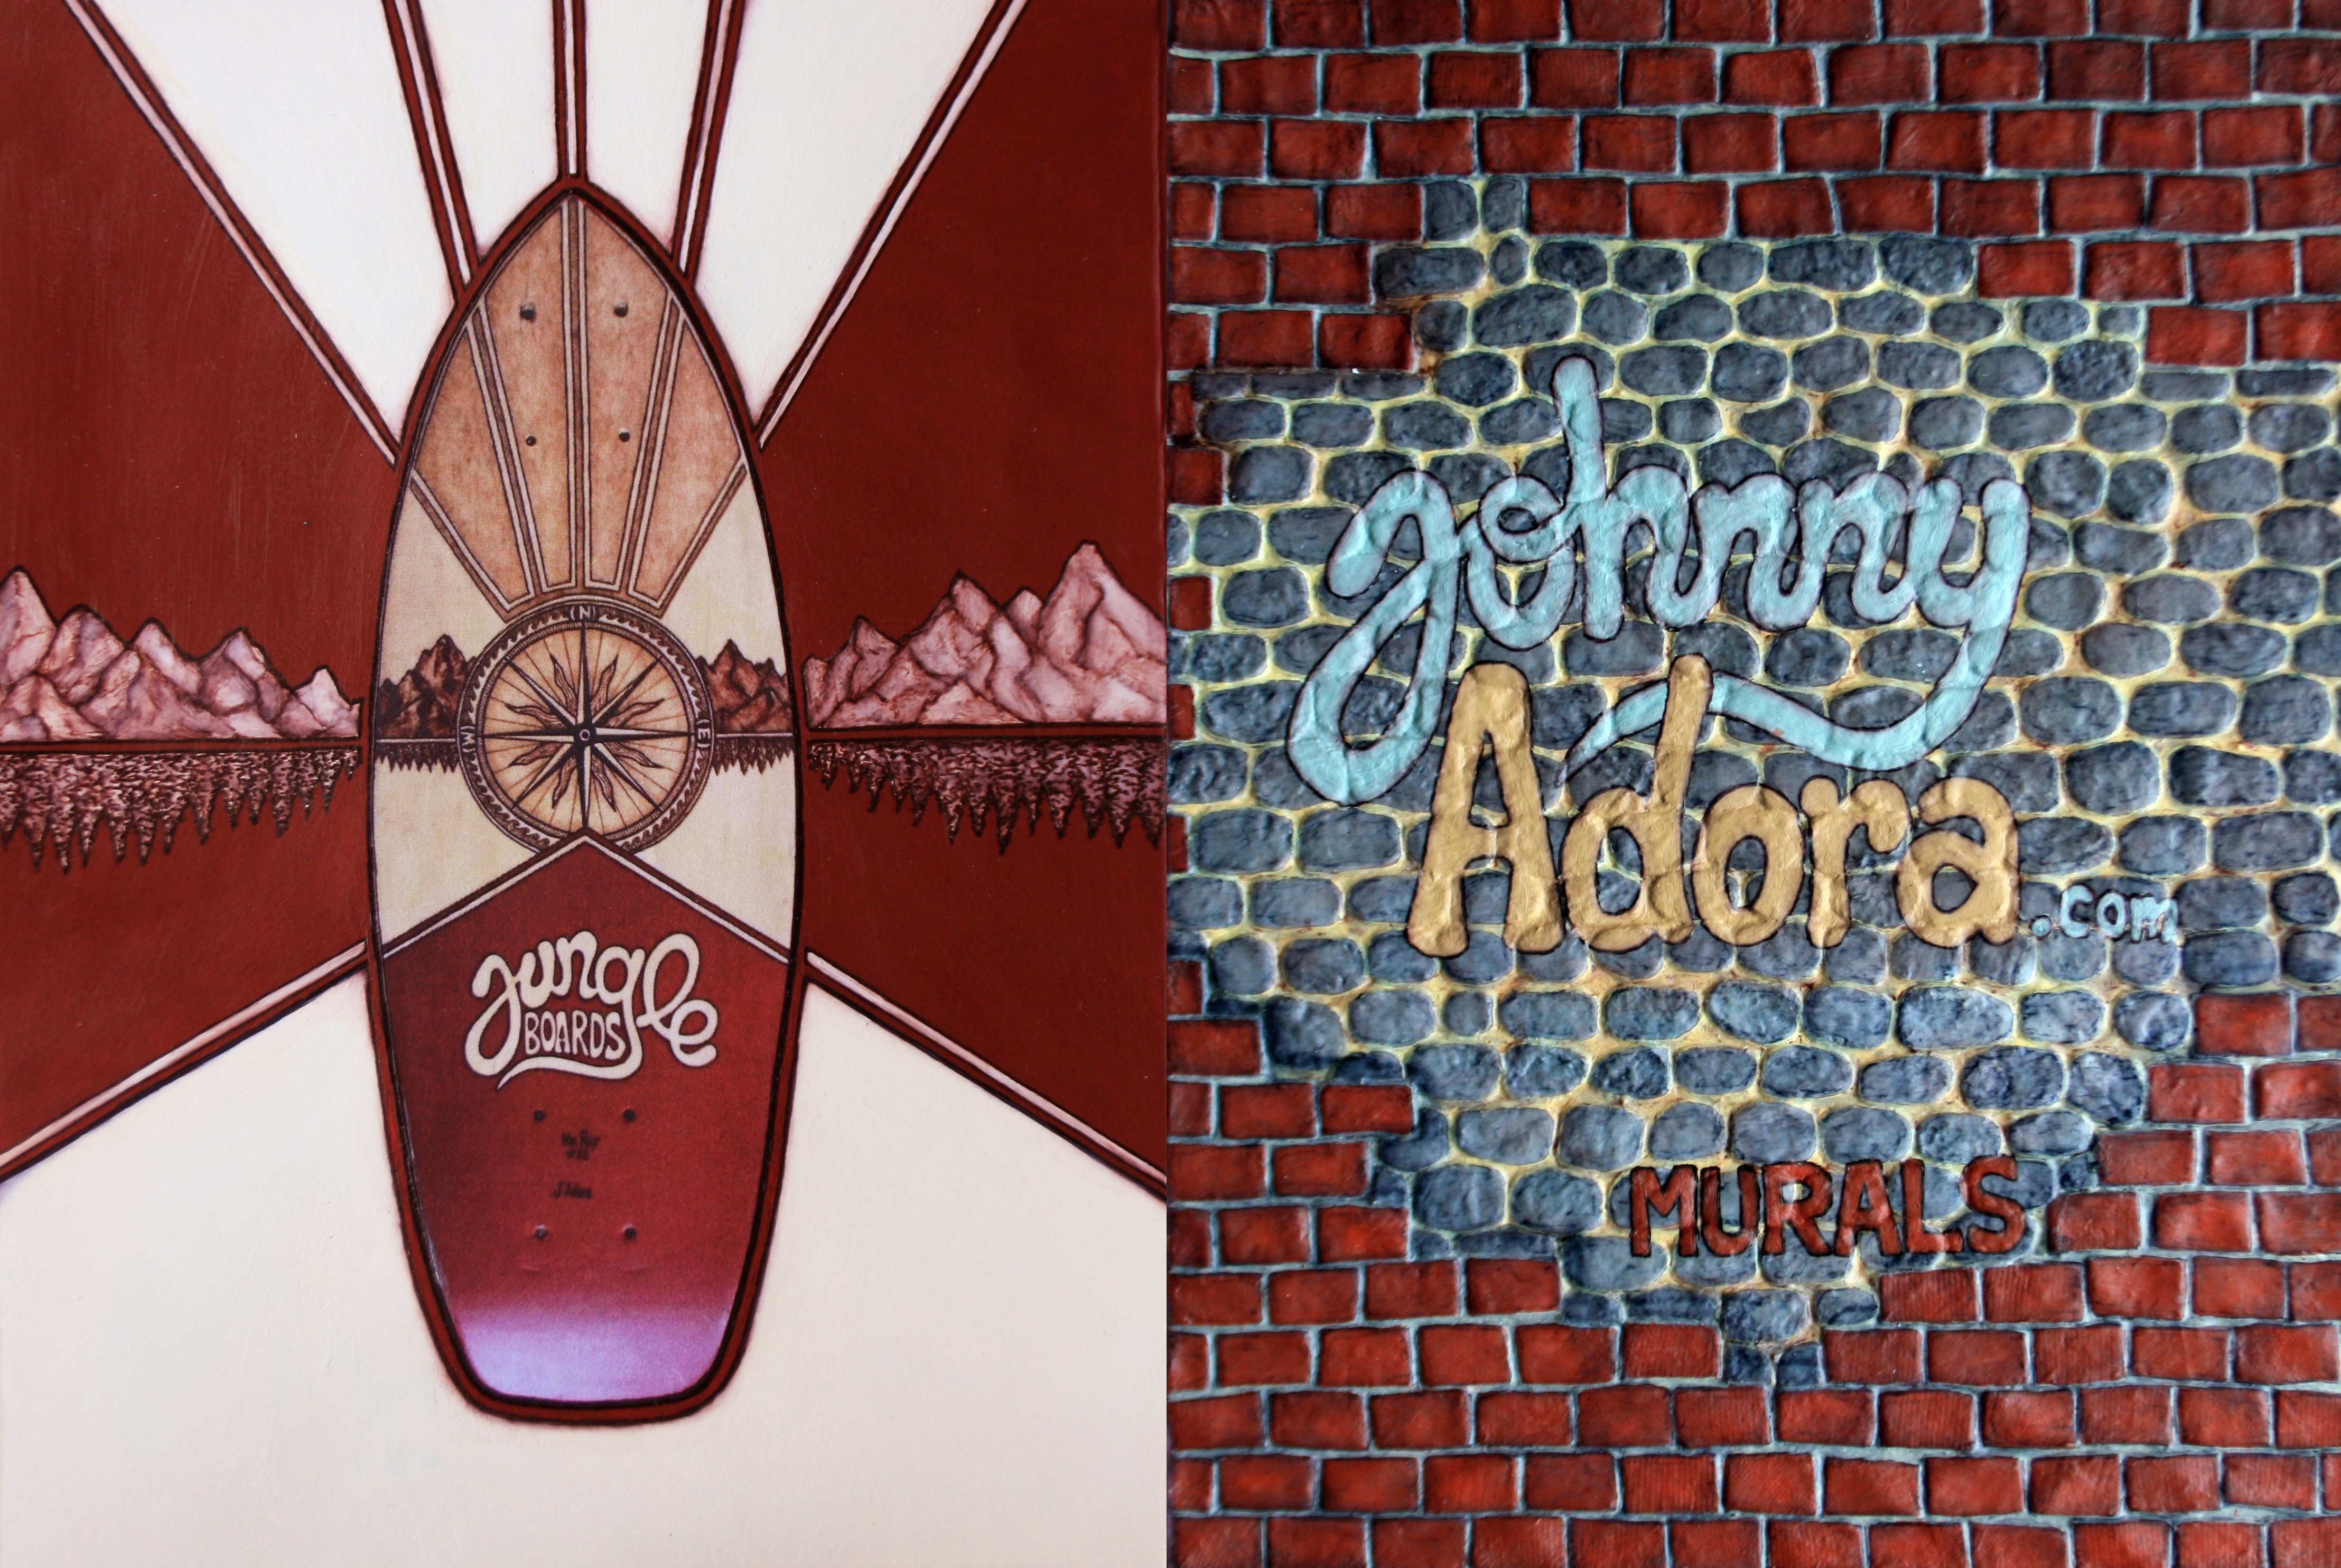 N
W
E
Jungle
BOARDS
Johnny
Adora
.com
MURALS